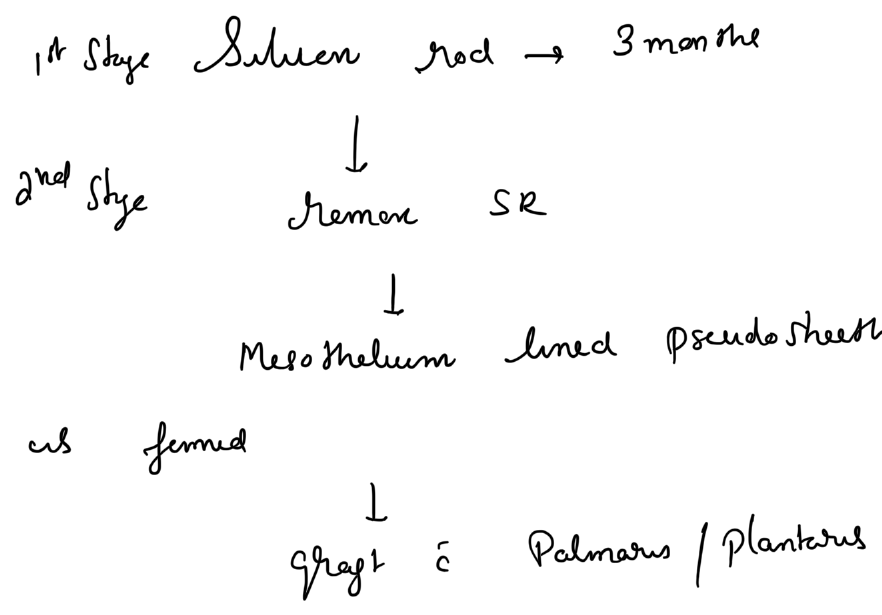 1st Stage Silicon rod → 3 months
↓
2nd Stage remove SR
↓
Mesothelium lined pseudosheath
is formed
↓
graft c̄ Palmaris / plantaris